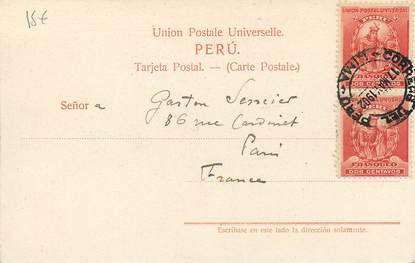 15€
Union Postale Universelle.
PERÚ.
Tarjeta Postal. — (Carte Postale.)
Señor á Gaston
86 rue Cardinet
Paris
France
Escríbase en este lado la dirección solamente.
UNION POSTAL UNIVERSAL
PERU
FRANQUEO
DOS CENTAVOS
PERU
FRANQUEO
DOS CENTAVOS
LIMA 1902